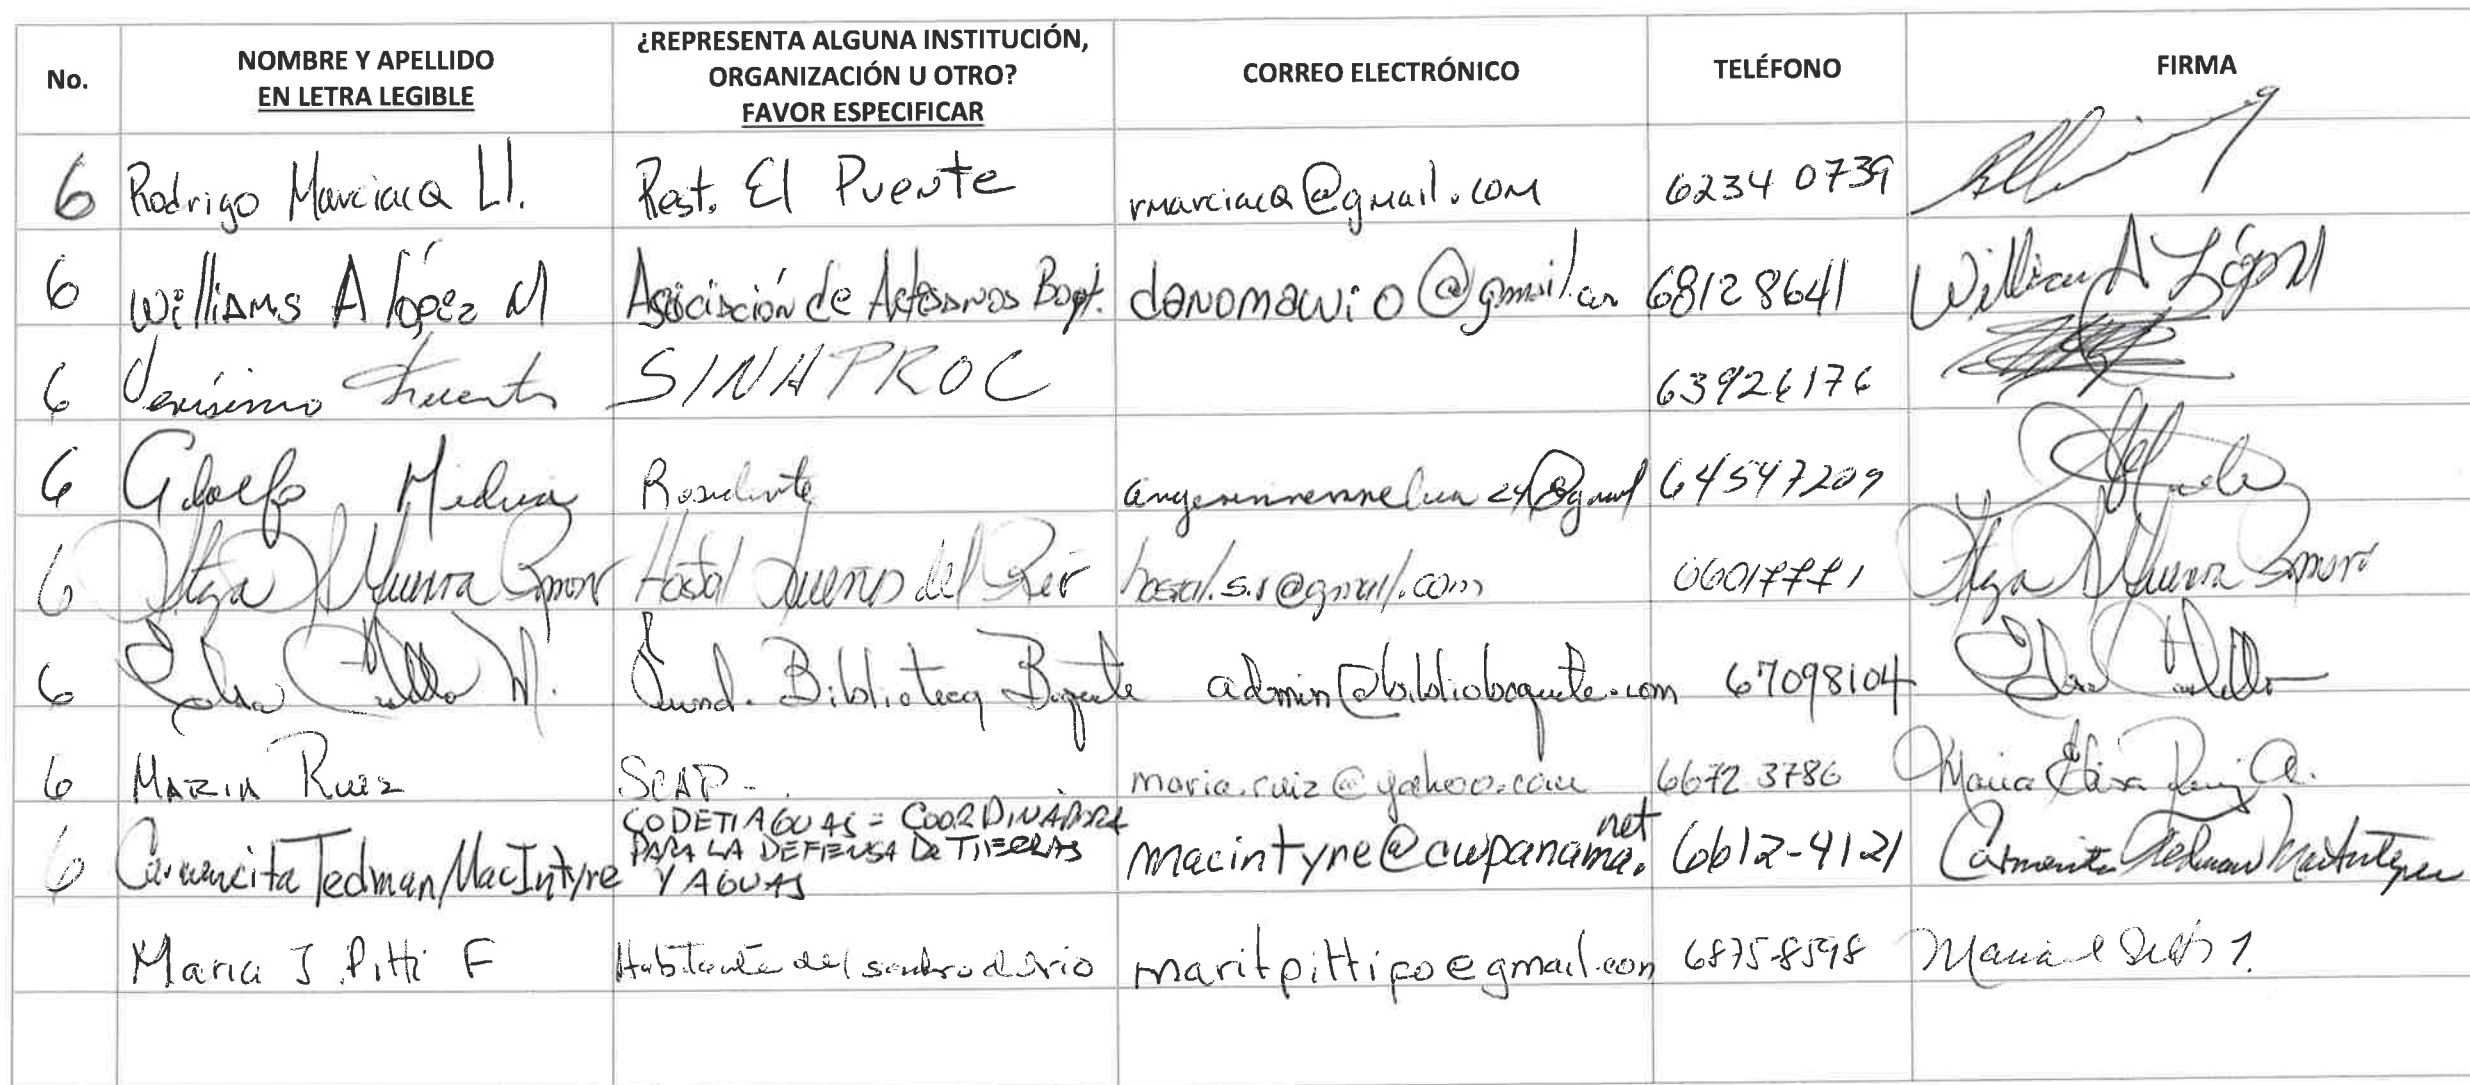 No.
NOMBRE Y APELLIDO
EN LETRA LEGIBLE
¿REPRESENTA ALGUNA INSTITUCIÓN,
ORGANIZACIÓN U OTRO?
FAVOR ESPECIFICAR
CORREO ELECTRÓNICO
TELÉFONO
FIRMA
6 Rodrigo Marciacq Ll. Rest. El Puente rmarciacq@gmail.com 6234 0739
6 Williams A López M Asociación de Artesanos Boqt. danomawio@gmail.com 68128641 William A López M
6 SINAPROC 63926176
6 Medina Residente 64547209
6 Itza Hostal Sueños del Río hostal.s.r@gmail.com 66017771 Itza
6 Fund. Biblioteca Boquete admin@biblioboquete.com 67098104
6 MARIA RUIZ SCAP-. maria.ruiz@yahoo.com 6672 3786 Maria Elisa Ruiz A.
6 Carmencita Tedman/MacIntyre CODETIAGUAS = COORDINADORA
PARA LA DEFENSA DE TIERRAS
Y AGUAS
macintyre@cwpanama.net 6612-4121 Carmencita Tedman MacIntyre
Maria J Pitti F Habitante del sendero del río 6875-8598